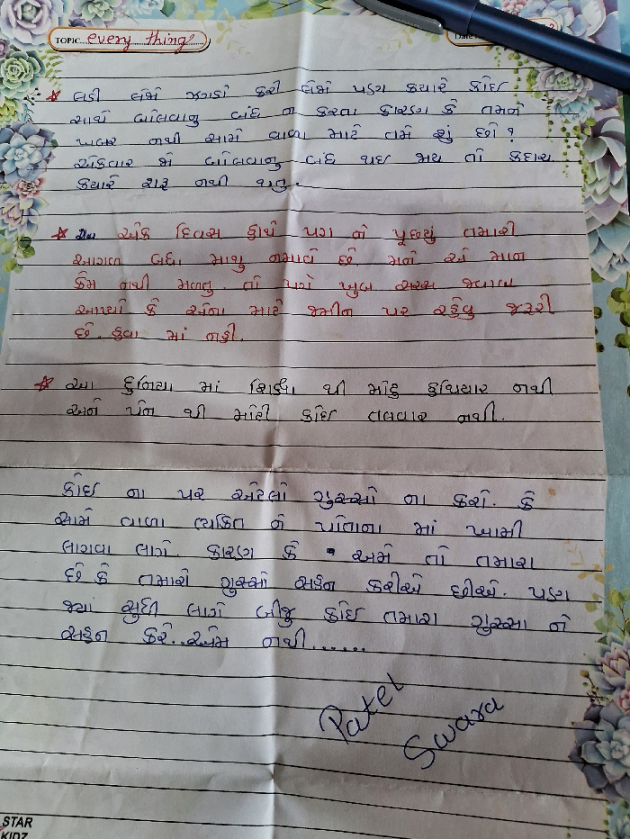 TOPIC every thing?
Date
★ લડી લેમો ઝગડો કરી લેમો પડણ કયારે કોઈ
સાથે બોલવાનુ બંધ ન કરતા કારણ કે તમને
ખબર નથી સામે વાળા માટે તમે શું છો?
એકવાર જો બોલવાનુ બંધ થઈ જાય તો કદાચ
કયારે શરૂ નથી થતુ.
★ એક દિવસ કોઇએ પગ ને પૂછયું તમારી
આગળ બધા માથુ નમાવે છે મને એ માન
કેમ નથી મળતુ. તો પગે ખુબ સરસ જવાબ
આપ્યો કે એના માટે જમીન પર રહેવુ જરૂરી
છે. હવા માં નહી.
★ આ દુનિયા માં શિક્ષા થી મોટુ હથિયાર નથી
અને પેન થી મોટી કોઈ તલવાર નથી.
કોઈ ના પર એટલો ગુસ્સો ના કરો. કે
સામે વાળા વ્યકિત ને પોતાના માં ખામી
લાગવા લાગે. કારણ કે અમે તો તમારા
છે કે તમારો ગુસ્સો સહન કરીએ છીએ. પણ
જયાં સુધી લાગે બીજુ કોઈ તમારા ગુસ્સા ને
સહન કરે..એમ નથી......
Patel
Swara
STAR
KIDZ